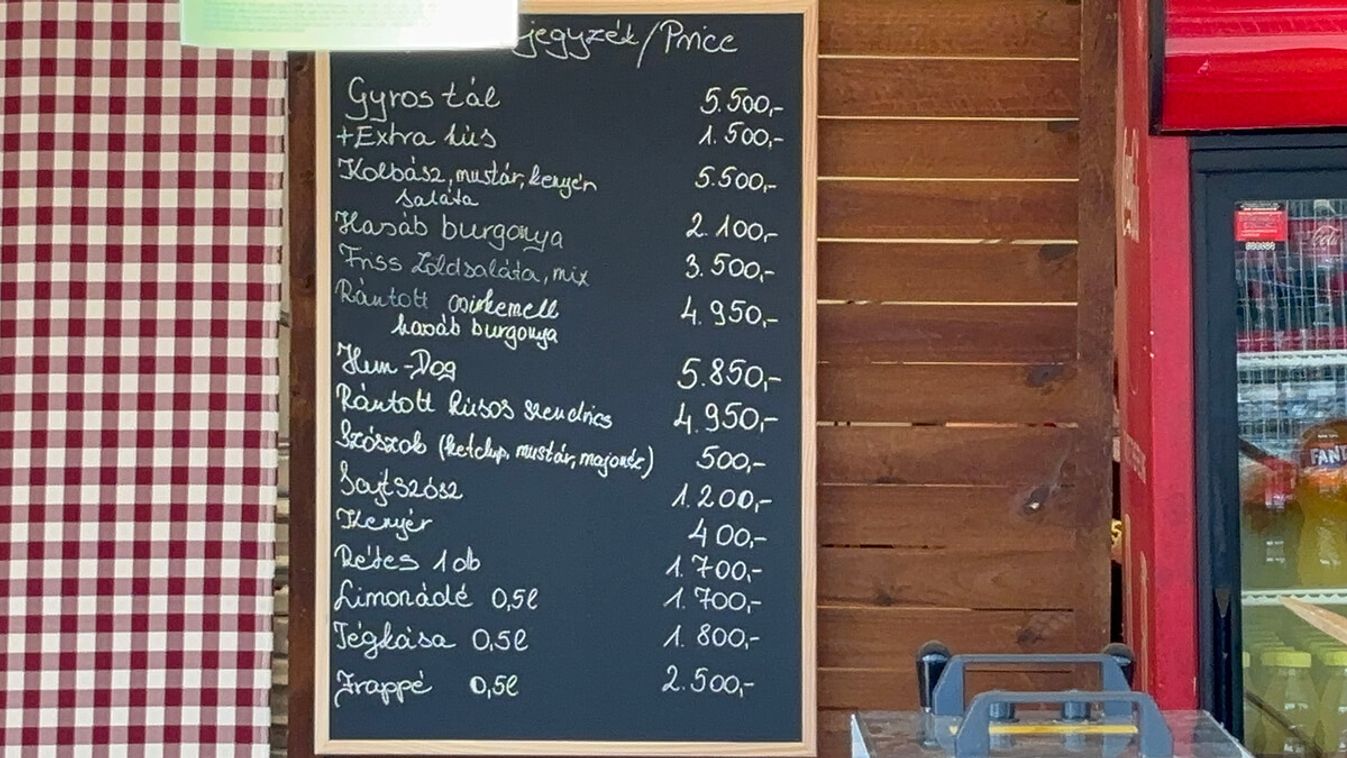 jegyzék/Price
Gyros tál 5.500,-
+Extra hús 1.500,-
Kolbász, mustár, kenyér 5.500,-
saláta
Hasáb burgonya 2.100,-
Friss zöldsaláta, mix 3.500,-
Rántott csirkemell 4.950,-
hasáb burgonya
Hun-Dog 5.850,-
Rántott húsos szendvics 4.950,-
Szószok (ketchup, mustár, majonéz) 500,-
Sajtszósz 1.200,-
Kenyér 400,-
Rétes 1 db 1.700,-
Limonádé 0,5l 1.700,-
Jégkása 0,5l 1.800,-
Frappé 0,5l 2.500,-
FANT